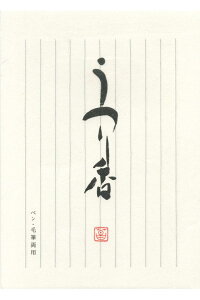 うつり香
ペン・毛筆両用